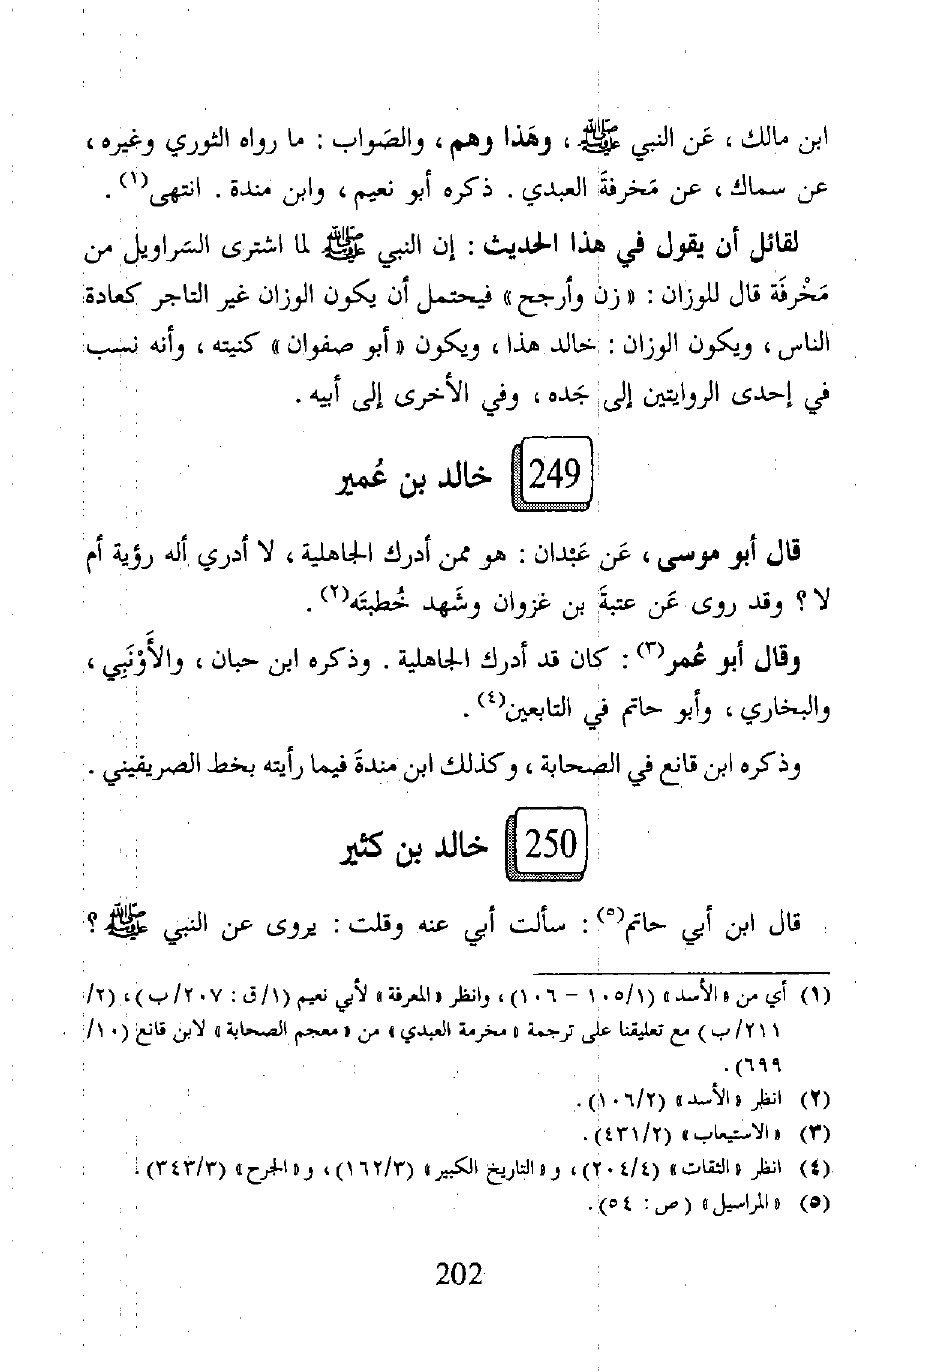 ابن مالك ، عَن النبي ﷺ ، وهَذا وهم ، والصَواب : ما رواه الثوري وغيره ،
عن سماك ، عن مَخرفةَ العبدي . ذكره أبو نعيم ، وابن مندة . انتهى(١) .
لقائل أن يقول في هذا الحديث : إن النبي ﷺ لما اشترى السَراويل من
مَخْرفَة قال للوزان : « زن وأرجح » فيحتمل أن يكون الوزان غير التاجر كعادة
الناس ، ويكون الوزان : خالد هذا ، ويكون « أبو صفوان » كنيته ، وأنه نسب
في إحدى الروايتين إلى جَده ، وفي الأخرى إلى أبيه .
249 خالد بن عُمير
قال أبو موسى ، عَن عَبْدان : هو ممن أدرك الجاهلية ، لا أدري أله رؤية أم
لا ؟ وقد روى عَن عتبةَ بن غزوان وشَهد خُطبتَه(٢) .
وقال أبو عُمر(٣) : كان قد أدرك الجاهلية . وذكره ابن حبان ، والأَوْنَبِي ،
والبخاري ، وأبو حاتم في التابعين(٤) .
وذكره ابن قانع في الصحابة ، وكذلك ابن مندةَ فيما رأيته بخط الصريفيني .
250 خالد بن كثير
قال ابن أبي حاتم(٥) : سألت أبي عنه وقلت : يروى عن النبي ﷺ ؟
(١) أي من « الأسد » (١/ ١٠٥ – ١٠٦) ، وانظر « المعرفة » لأبي نعيم (١/ ق : ٢٠٧/ ب) ، (٢/
٢١١/ ب) مع تعليقنا على ترجمة « مخرمة العبدي » من « معجم الصحابة » لابن قانع (١٠/
٦٩٩) .
(٢) انظر « الأسد » (٢/ ١٠٦) .
(٣) « الاستيعاب » (٢/ ٤٣١) .
(٤) انظر « الثقات » (٤/ ٢٠٤) ، و « التاريخ الكبير » (٣/ ١٦٢) ، و « الجرح » (٣/ ٣٤٣) .
(٥) « المراسيل » (ص : ٥٤) .
202